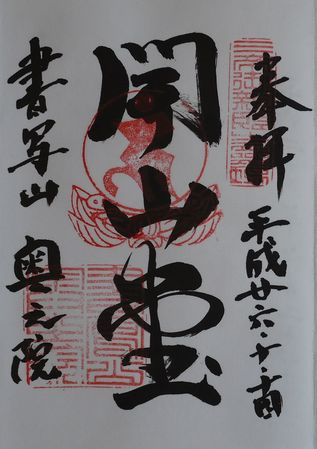 奉拝
平成廿六・十・
開山堂
書写山 奥之院